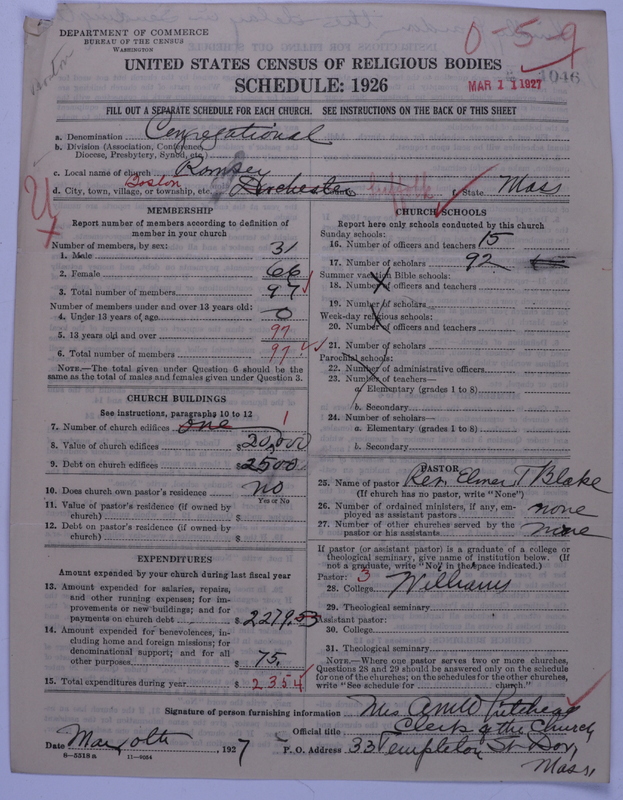 DEPARTMENT OF COMMERCE
BUREAU OF THE CENSUS
WASHINGTON
0-59
1046
MAR 11 1927
UNITED STATES CENSUS OF RELIGIOUS BODIES
SCHEDULE: 1926
FILL OUT A SEPARATE SCHEDULE FOR EACH CHURCH. SEE INSTRUCTIONS ON THE BACK OF THIS SHEET
a. Denomination Congregational
b. Division (Association, Conference, Diocese, Presbytery, Synod, etc.)
c. Local name of church Romsey
d. City, town, village, or township, etc. Boston Dorchester Suffolk f. State Mass
MEMBERSHIP
Report number of members according to definition of member in your church
Number of members, by sex:
1. Male 31
2. Female 66
3. Total number of members 97
Number of members under and over 13 years old:
4. Under 13 years of age 0
5. 13 years old and over 97
6. Total number of members 97
NOTE.—The total given under Question 6 should be
same as the total of males and females given under Question 3.
CHURCH BUILDINGS
See instructions, paragraphs 10 to 12
7. Number of church edifices one 1
8. Value of church edifices $ 20,000
9. Debt on church edifices $ 2500
10. Does church own pastor's residence no
Yes or No
11. Value of pastor's residence (if owned by
church) $
12. Debt on pastor's residence (if owned by
church) $
EXPENDITURES
Amount expended by your church during last fiscal year
13. Amount expended for salaries, repairs,
and other running expenses; for im-
provements or new buildings; and for
payments on church debt $ 2279.53
14. Amount expended for benevolences, in-
cluding home and foreign missions; for
denominational support; and for all
other purposes $ 75.
15. Total expenditures during year $ 2354
CHURCH SCHOOLS
Report here only schools conducted by this church
Sunday schools:
16. Number of officers and teachers 15
17. Number of scholars 92
Summer vacation Bible schools:
18. Number of officers and teachers
19. Number of scholars
Week-day religious schools:
20. Number of officers and teachers
21. Number of scholars
Parochial schools:
22. Number of administrative officers
23. Number of teachers—
a. Elementary (grades 1 to 8)
b. Secondary
24. Number of scholars—
a. Elementary (grades 1 to 8)
b. Secondary
PASTOR
25. Name of pastor Rev. Elmer T Blake
(If church has no pastor, write "None")
26. Number of ordained ministers, if any, em-
ployed as assistant pastors none
27. Number of other churches served by the
pastor or his assistants none
If pastor (or assistant pastor) is a graduate of a college or
theological seminary, give name of institution below. (If
not a graduate, write "No" in the space indicated.)
Pastor: 3
28. College Williams
29. Theological seminary
Assistant pastor:
30. College
31. Theological seminary
NOTE.—Where one pastor serves two or more churches,
Questions 28 and 29 should be answered only on the schedule
for one of the churches; on the schedules for the other churches,
write "See schedule for church."
Signature of person furnishing information Mrs
Official title Clerk of the Church
Date 1927
P. O. Address 33 Templeton St Dor,
Mass,
6-5518 a 11-9064